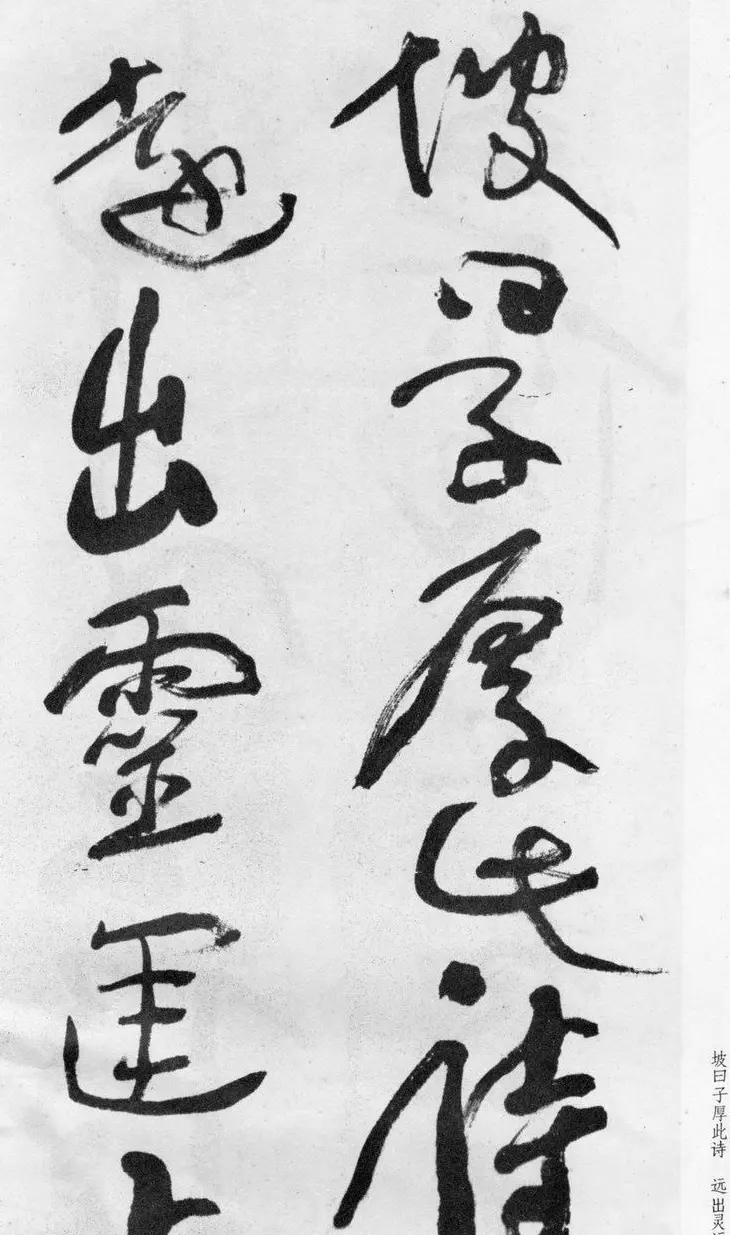 坡曰子厚此詩
遠出靈運上
坡曰子厚此诗 远出灵运